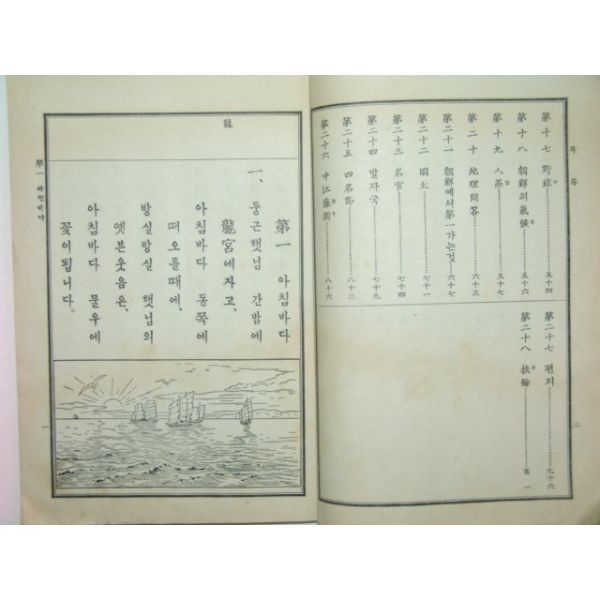 第十七 野球 五十四
第十八 朝鮮의氣候 五十六
第十九 人蔘 五十七
第二十 地理問答 六十三
第二十一 朝鮮에서第一가는것 六十七
第二十二 七十一
第二十三 名官 七十四
第二十四 발자국 七十九
第二十五 四名節 八十三
第二十六 中江 八十六
第二十七 편지 九十六
第二十八 扶倫 百一
二
龍
第一 아침바다
一、둥근햇님 간밤에
龍宮에자고、
아침바다 동쪽에
떠오를때에、
방실방실 햇님의
옛본웃음은、
아침바다 물우에
꽃이됩니다。
第一 아침바다
一